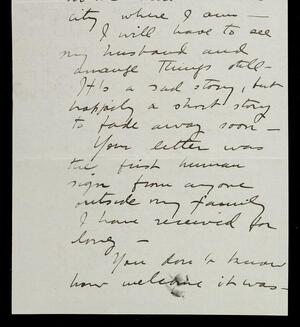 city where I am —
I will have to see
my husband and
arrange things still —
It's a sad story, but
happily a short story
to fade away soon —
Your letter was
the first human
sign from anyone
outside my family
I have received for
long —
You don't know
how welcome it was —